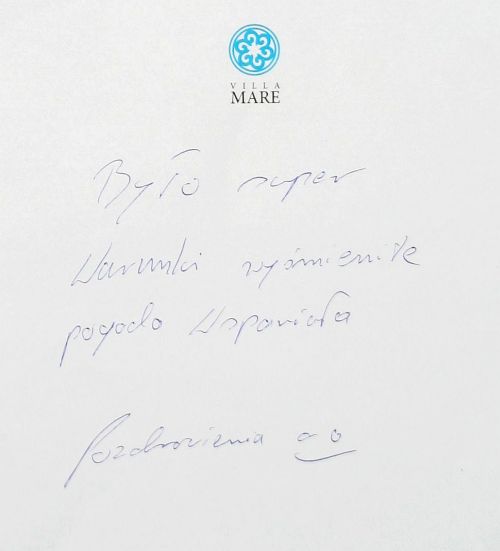 VILLA
MARE
Było super
Warunki wyśmienite
pogoda Wspaniała
Pozdrowienia